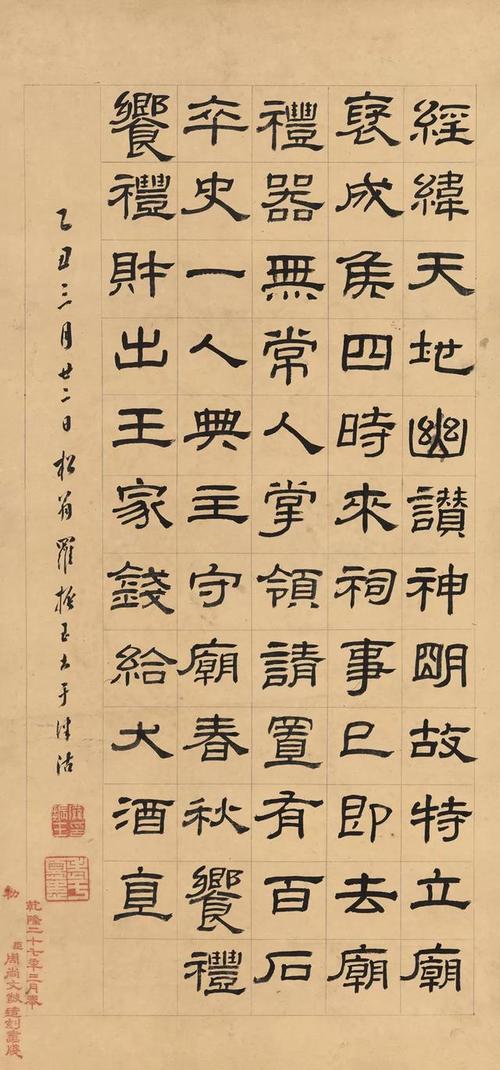 經緯天地幽讚神明故特立廟
褒成侯四時來祠事已即去廟
禮器無常人掌領請置有百石
卒史一人典主守廟春秋饗禮
饗禮財出王家錢給犬酒直
乙丑三月廿二日松翁羅振玉書于津沽
乾隆二十七年三月奉
勅
臣周尚文敬造刻畫牋